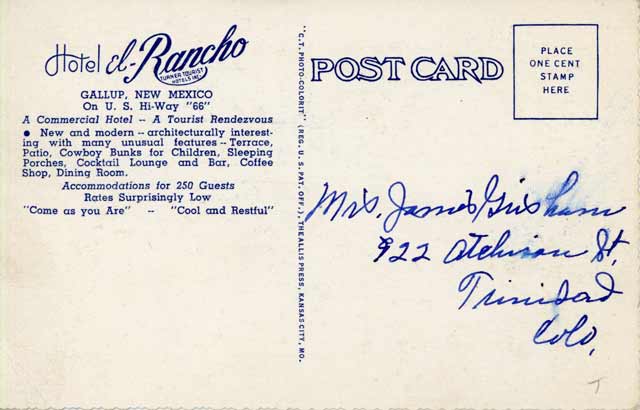 Hotel El-Rancho
TURNER TOURIST
HOTELS INC.
GALLUP, NEW MEXICO
On U. S. Hi-Way "66"
A Commercial Hotel -- A Tourist Rendezvous
● New and modern -- architecturally interest-
ing with many unusual features -- Terrace,
Patio, Cowboy Bunks for Children, Sleeping
Porches, Cocktail Lounge and Bar, Coffee
Shop, Dining Room.
Accommodations for 250 Guests
Rates Surprisingly Low
"Come as you Are" -- "Cool and Restful"
"C.T. PHOTO-COLORIT" (REG. U. S. PAT. OFF.), THE ALLIS PRESS, KANSAS CITY, MO.
POST CARD
PLACE
ONE CENT
STAMP
HERE
Mrs. James Grisham
922 Atchison St.
Trinidad
Colo.
T